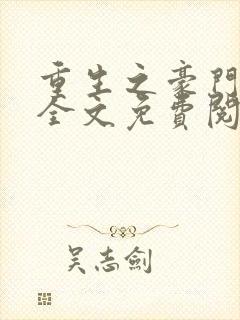 重生之豪門
全文免費閱
吳志劍